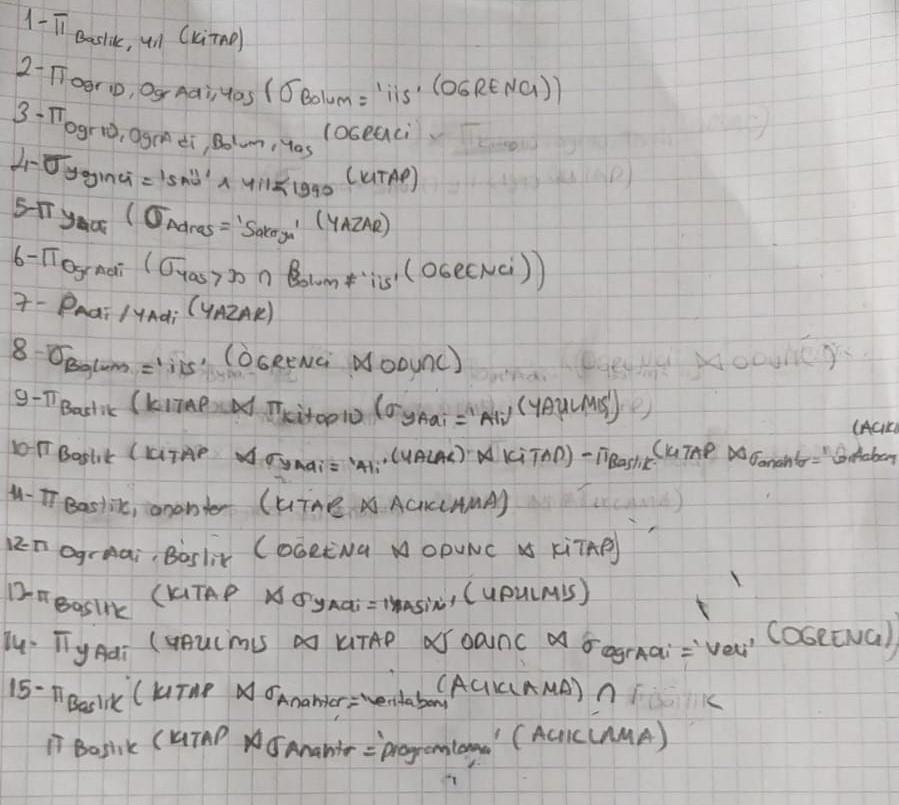 1-π Baslık, yıl (KiTAP)
2-π ogrıD, OgrAdi, yas (σ Bolum = 'iis' (OGRENCi))
3-π OgrıD, OgrAdi, Bolum, yas (OGRENCi
4-σ yayinci = 'SAÜ' ∧ yil ≤ 1990 (KİTAP)
5-π yAdi (σ Adres = 'Sakarya' (YAZAR)
6-π OgrAdi (σ yas > 20 ∩ Bolum ≠ 'iis' (OGRENCi))
7- ρ Adi / yAdi (YAZAR)
8-σ Bolum = 'iis' (OGRENCi ⋈ ODUNC)
9-π Baslik (KİTAP ⋈ π kitapID (σ yAdi = 'Ali' (YAZILMIS)
(ACIK
10-π Baslik (KİTAP ⋈ σ yAdi = 'Ali' (YAZAR) ⋈ KiTAP) - π Baslik (KİTAP ⋈ σ anahtar =
11-π Baslik, anahtar (KİTAP ⋈ ACIKLAMA)
12-π OgrAdi, Baslik (OGRENCi ⋈ ODUNC ⋈ KİTAP)
13-π Baslik (KİTAP ⋈ σ yAdi =
14- π yAdi (YAZILMIS ⋈ KİTAP ⋈ ODUNC ⋈ σ ogrAdi = 'Veli' (OGRENCi)
15-π Baslik (KİTAP ⋈ σ Anahtar = 'veritabanı' (ACIKLAMA) ∩
π Baslik (KİTAP ⋈ σ Anahtar = 'programlama' (ACIKLAMA)